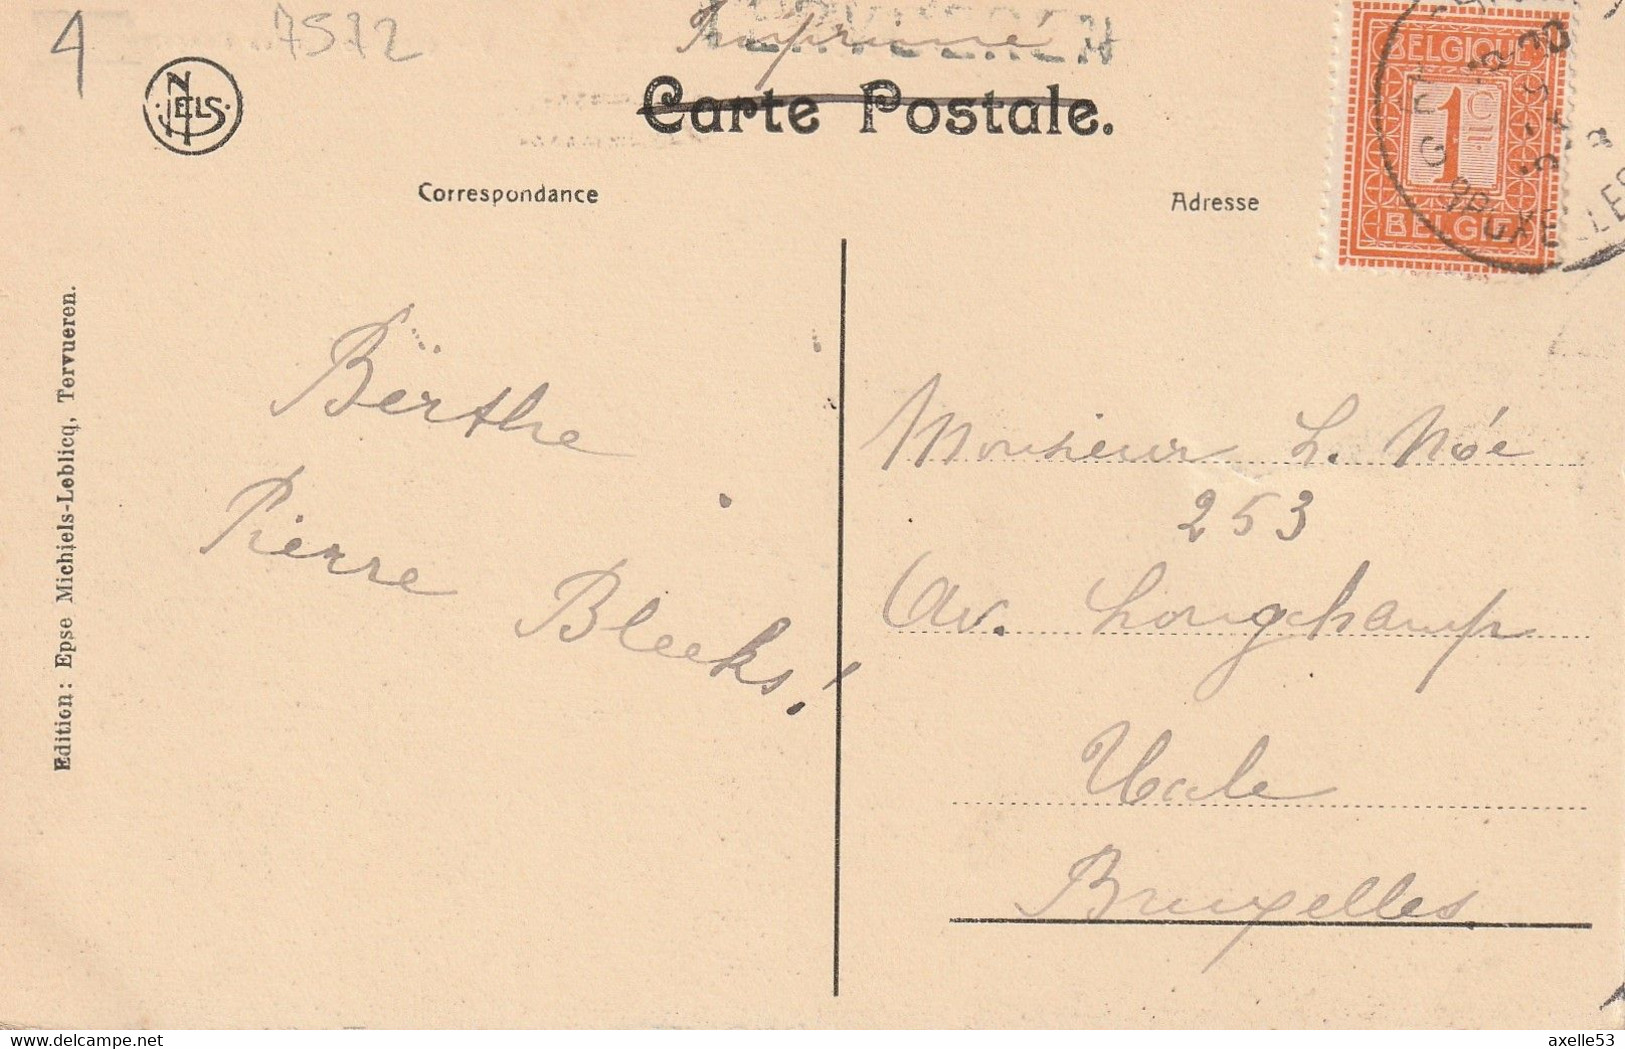 4
7512
Imprimé
Carte Postale.
NELS
BELGIQUE
1
BELGIE
BRUXELLES
Correspondance
Adresse
Edition: Epse Michiels-Leblicq, Tervueren.
Berthe
Pierre Bleeks!
Monsieur L. Nóe
253
Av. Longchamp
Uccle
Bruxelles
delcampe.net
axelle53